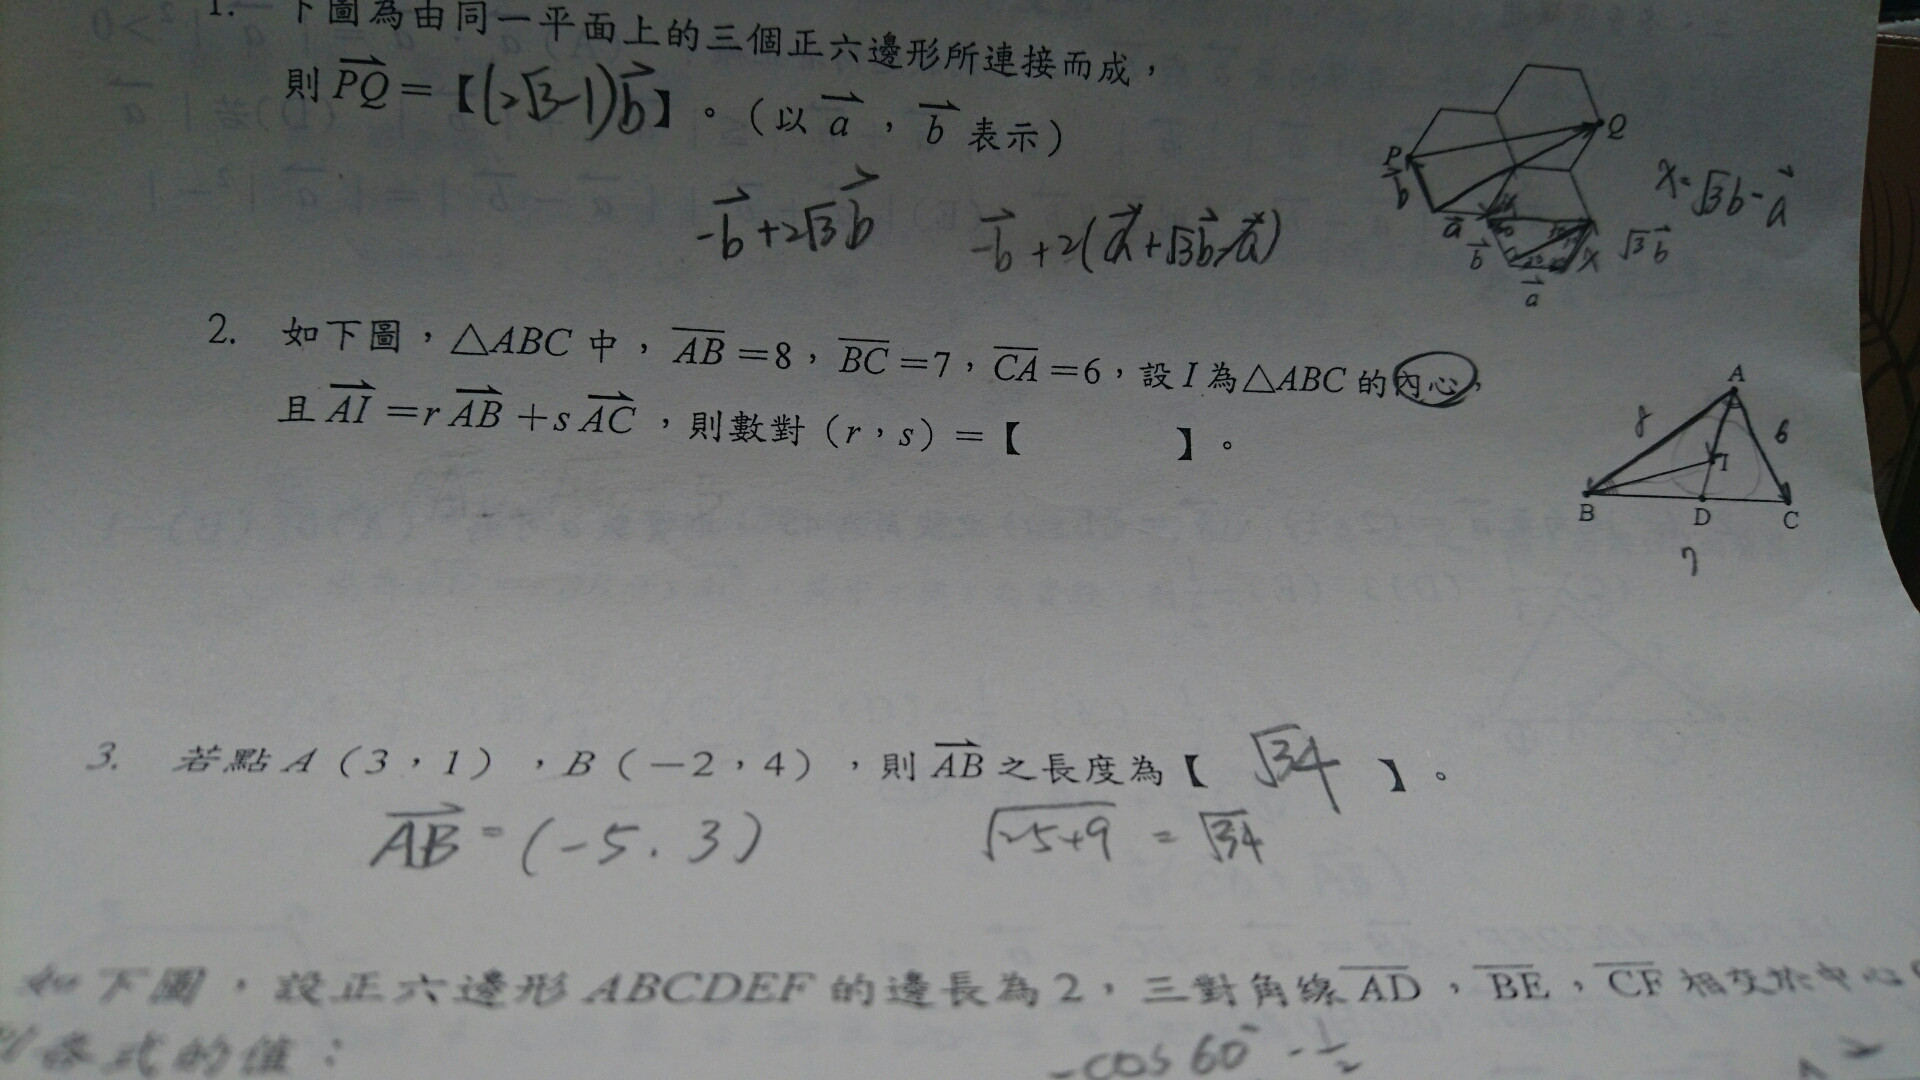 1. 下圖為由同一平面上的三個正六邊形所連接而成，
則 PQ = 【(2√3-1)b】。（以 a ， b 表示）
-b+2√3b
-b+2(a+√3b-a)
P
Q
b
a
b
a
X
√3b
X=√3b-a
2. 如下圖，△ABC 中， AB =8， BC =7， CA =6，設 I 為 △ABC 的內心，
且 AI =r AB +s AC ，則數對（r，s）=【 】。
A
8
6
I
B D C
7
3. 若點 A（3，1），B（-2，4），則 AB 之長度為【 √34 】。
AB = (-5, 3)
√25+9 = √34
如下圖，設正六邊形 ABCDEF 的邊長為 2，三對角線 AD ， BE ， CF 相交於中心
各式的值：
-cos 60° - 1/2